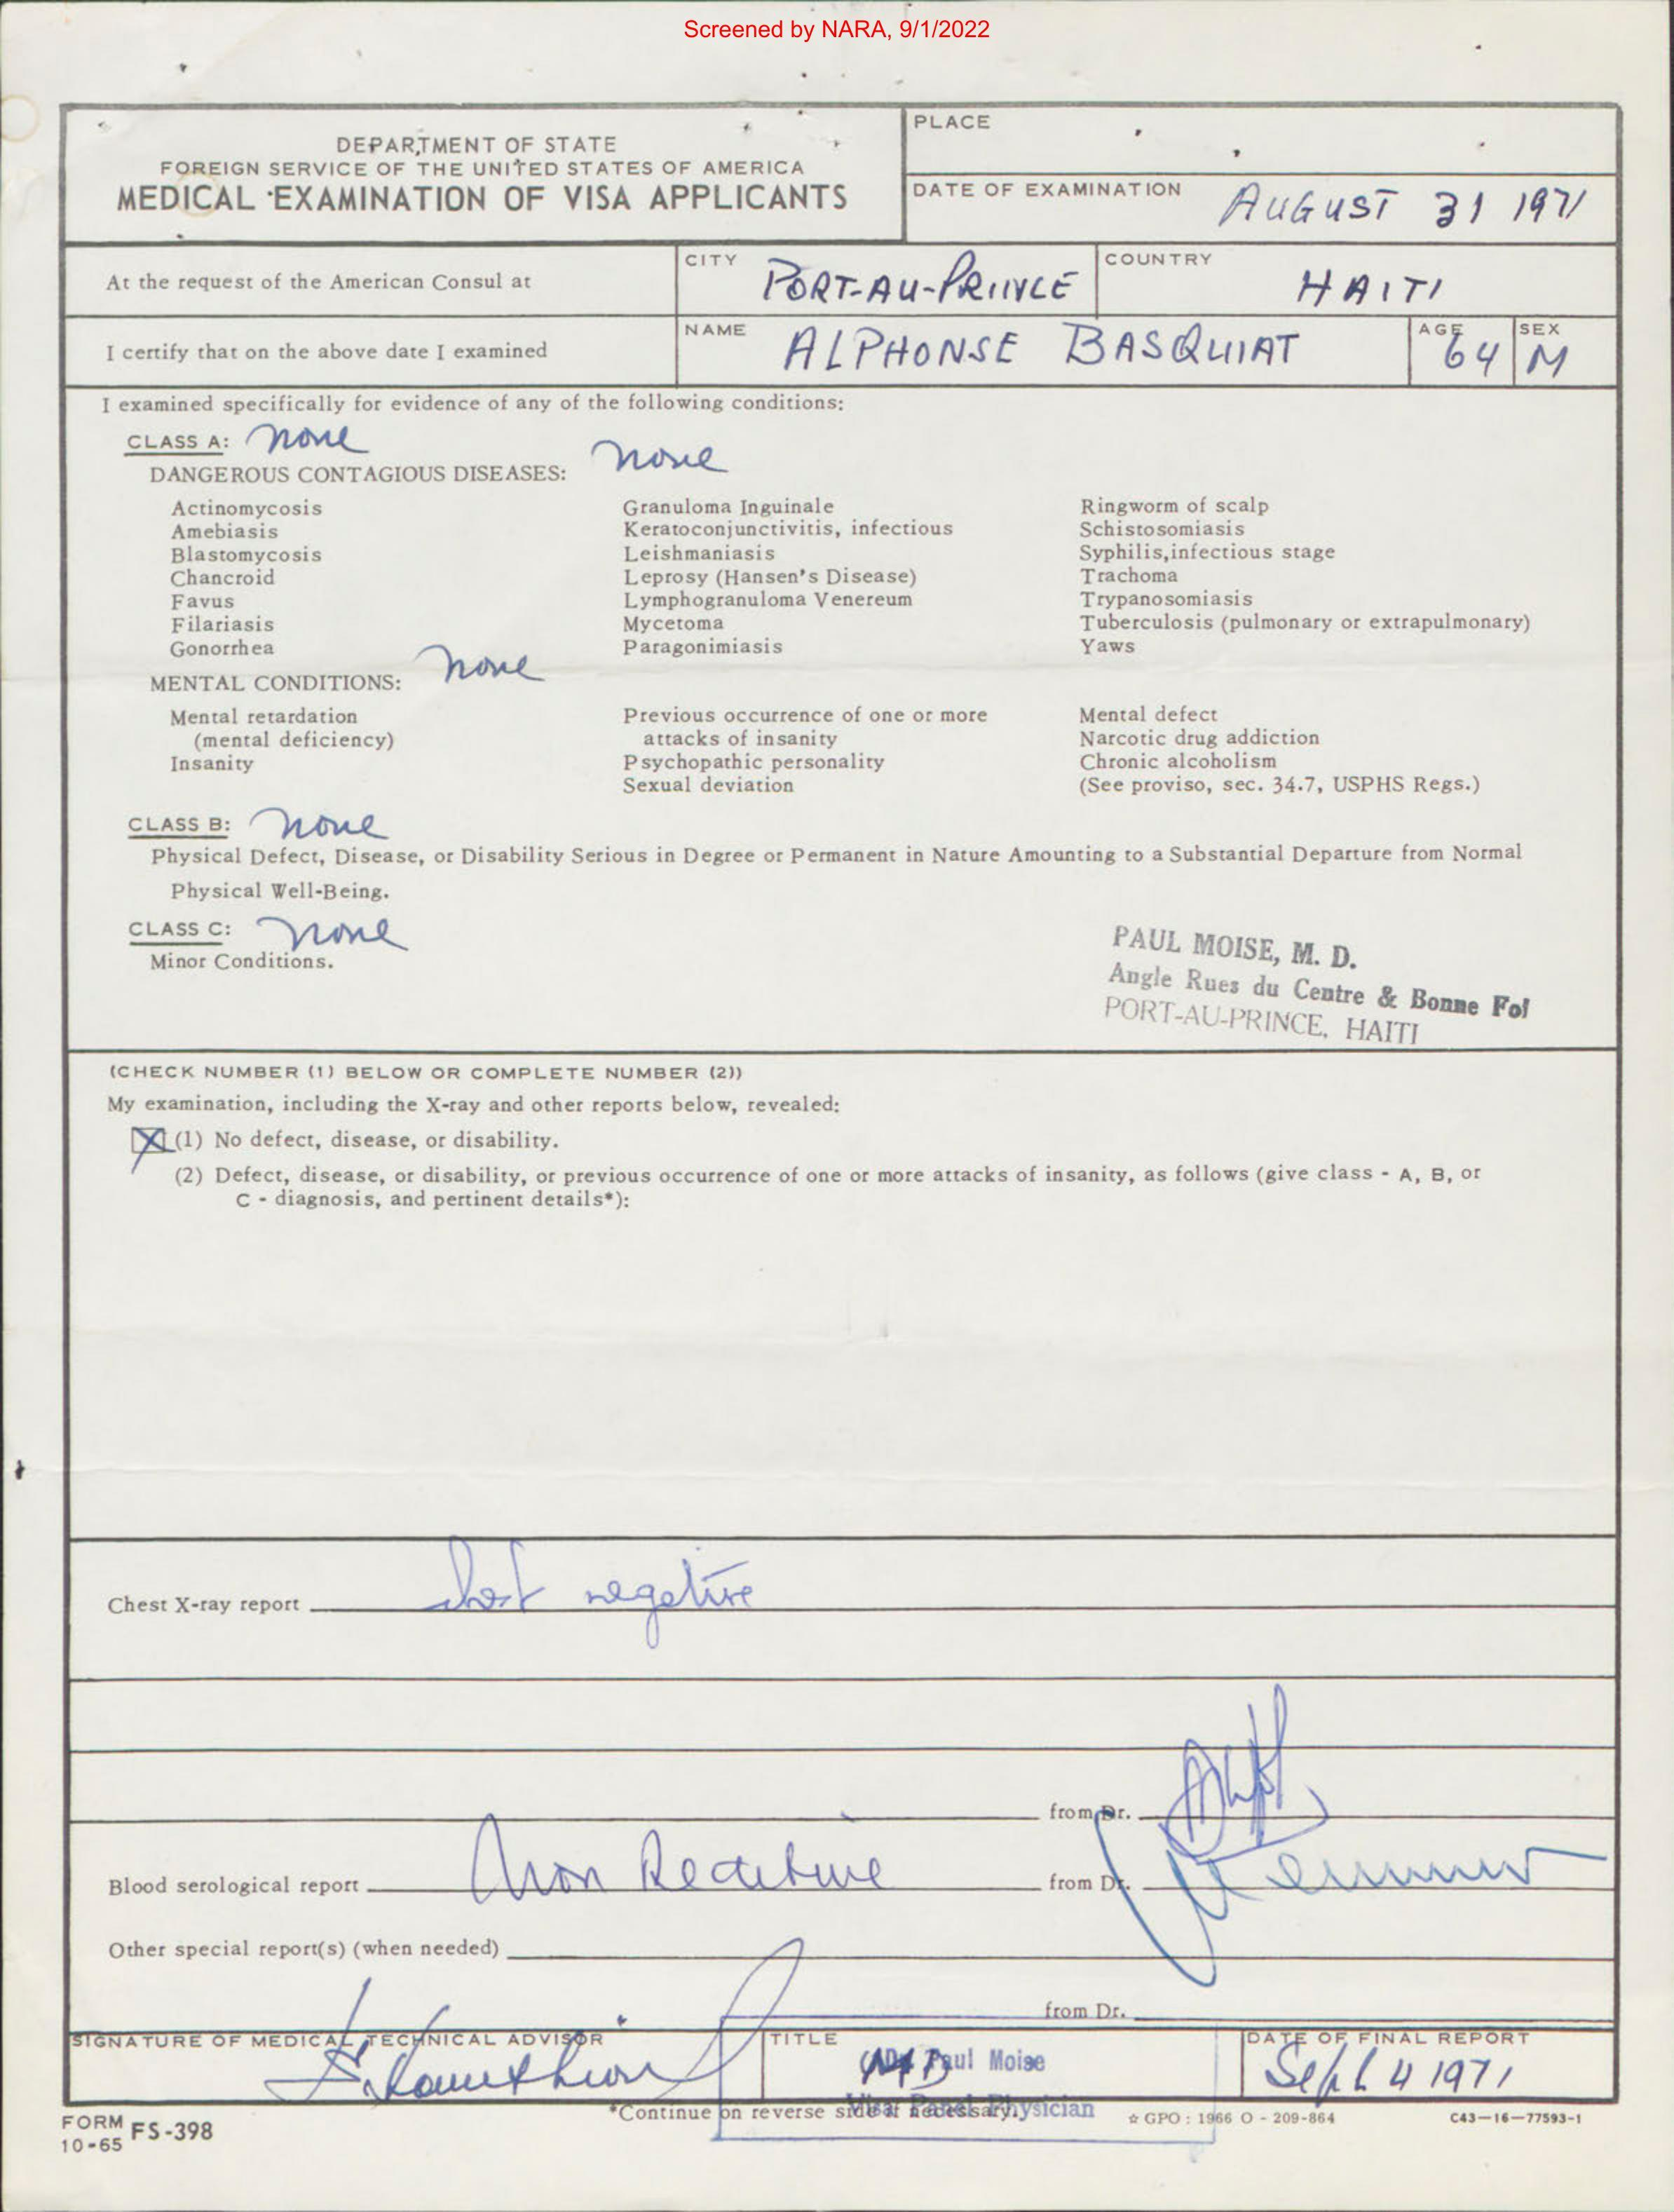 Screened by NARA, 9/1/2022
DEPARTMENT OF STATE
FOREIGN SERVICE OF THE UNITED STATES OF AMERICA
MEDICAL EXAMINATION OF VISA APPLICANTS
PLACE
DATE OF EXAMINATION AUGUST 31 1971
At the request of the American Consul at
CITY PORT-AU-PRINCE
COUNTRY HAITI
I certify that on the above date I examined
NAME ALPHONSE BASQUIAT
AGE 64
SEX M
I examined specifically for evidence of any of the following conditions:
CLASS A: none
DANGEROUS CONTAGIOUS DISEASES: none
Actinomycosis
Amebiasis
Blastomycosis
Chancroid
Favus
Filariasis
Gonorrhea
Granuloma Inguinale
Keratoconjunctivitis, infectious
Leishmaniasis
Leprosy (Hansen's Disease)
Lymphogranuloma Venereum
Mycetoma
Paragonimiasis
Ringworm of scalp
Schistosomiasis
Syphilis, infectious stage
Trachoma
Trypanosomiasis
Tuberculosis (pulmonary or extrapulmonary)
Yaws
MENTAL CONDITIONS: none
Mental retardation
(mental deficiency)
Insanity
Previous occurrence of one or more
attacks of insanity
Psychopathic personality
Sexual deviation
Mental defect
Narcotic drug addiction
Chronic alcoholism
(See proviso, sec. 34.7, USPHS Regs.)
CLASS B: none
Physical Defect, Disease, or Disability Serious in Degree or Permanent in Nature Amounting to a Substantial Departure from Normal
Physical Well-Being.
CLASS C: none
Minor Conditions.
PAUL MOISE, M. D.
Angle Rues du Centre & Bonne Foi
PORT-AU-PRINCE, HAITI
(CHECK NUMBER (1) BELOW OR COMPLETE NUMBER (2))
My examination, including the X-ray and other reports below, revealed:
X (1) No defect, disease, or disability.
(2) Defect, disease, or disability, or previous occurrence of one or more attacks of insanity, as follows (give class - A, B, or
C - diagnosis, and pertinent details*):
Chest X-ray report chest negative
from Dr.
Blood serological report Non Reactive
from Dr.
Other special report(s) (when needed)
from Dr.
SIGNATURE OF MEDICAL TECHNICAL ADVISOR
TITLE
Dr. Paul Moise
Visa Panel Physician
DATE OF FINAL REPORT
Sept 4 1971
*Continue on reverse side if necessary.
FORM FS-398
10-65
☆ GPO : 1966 O - 209-864
C43-16-77593-1